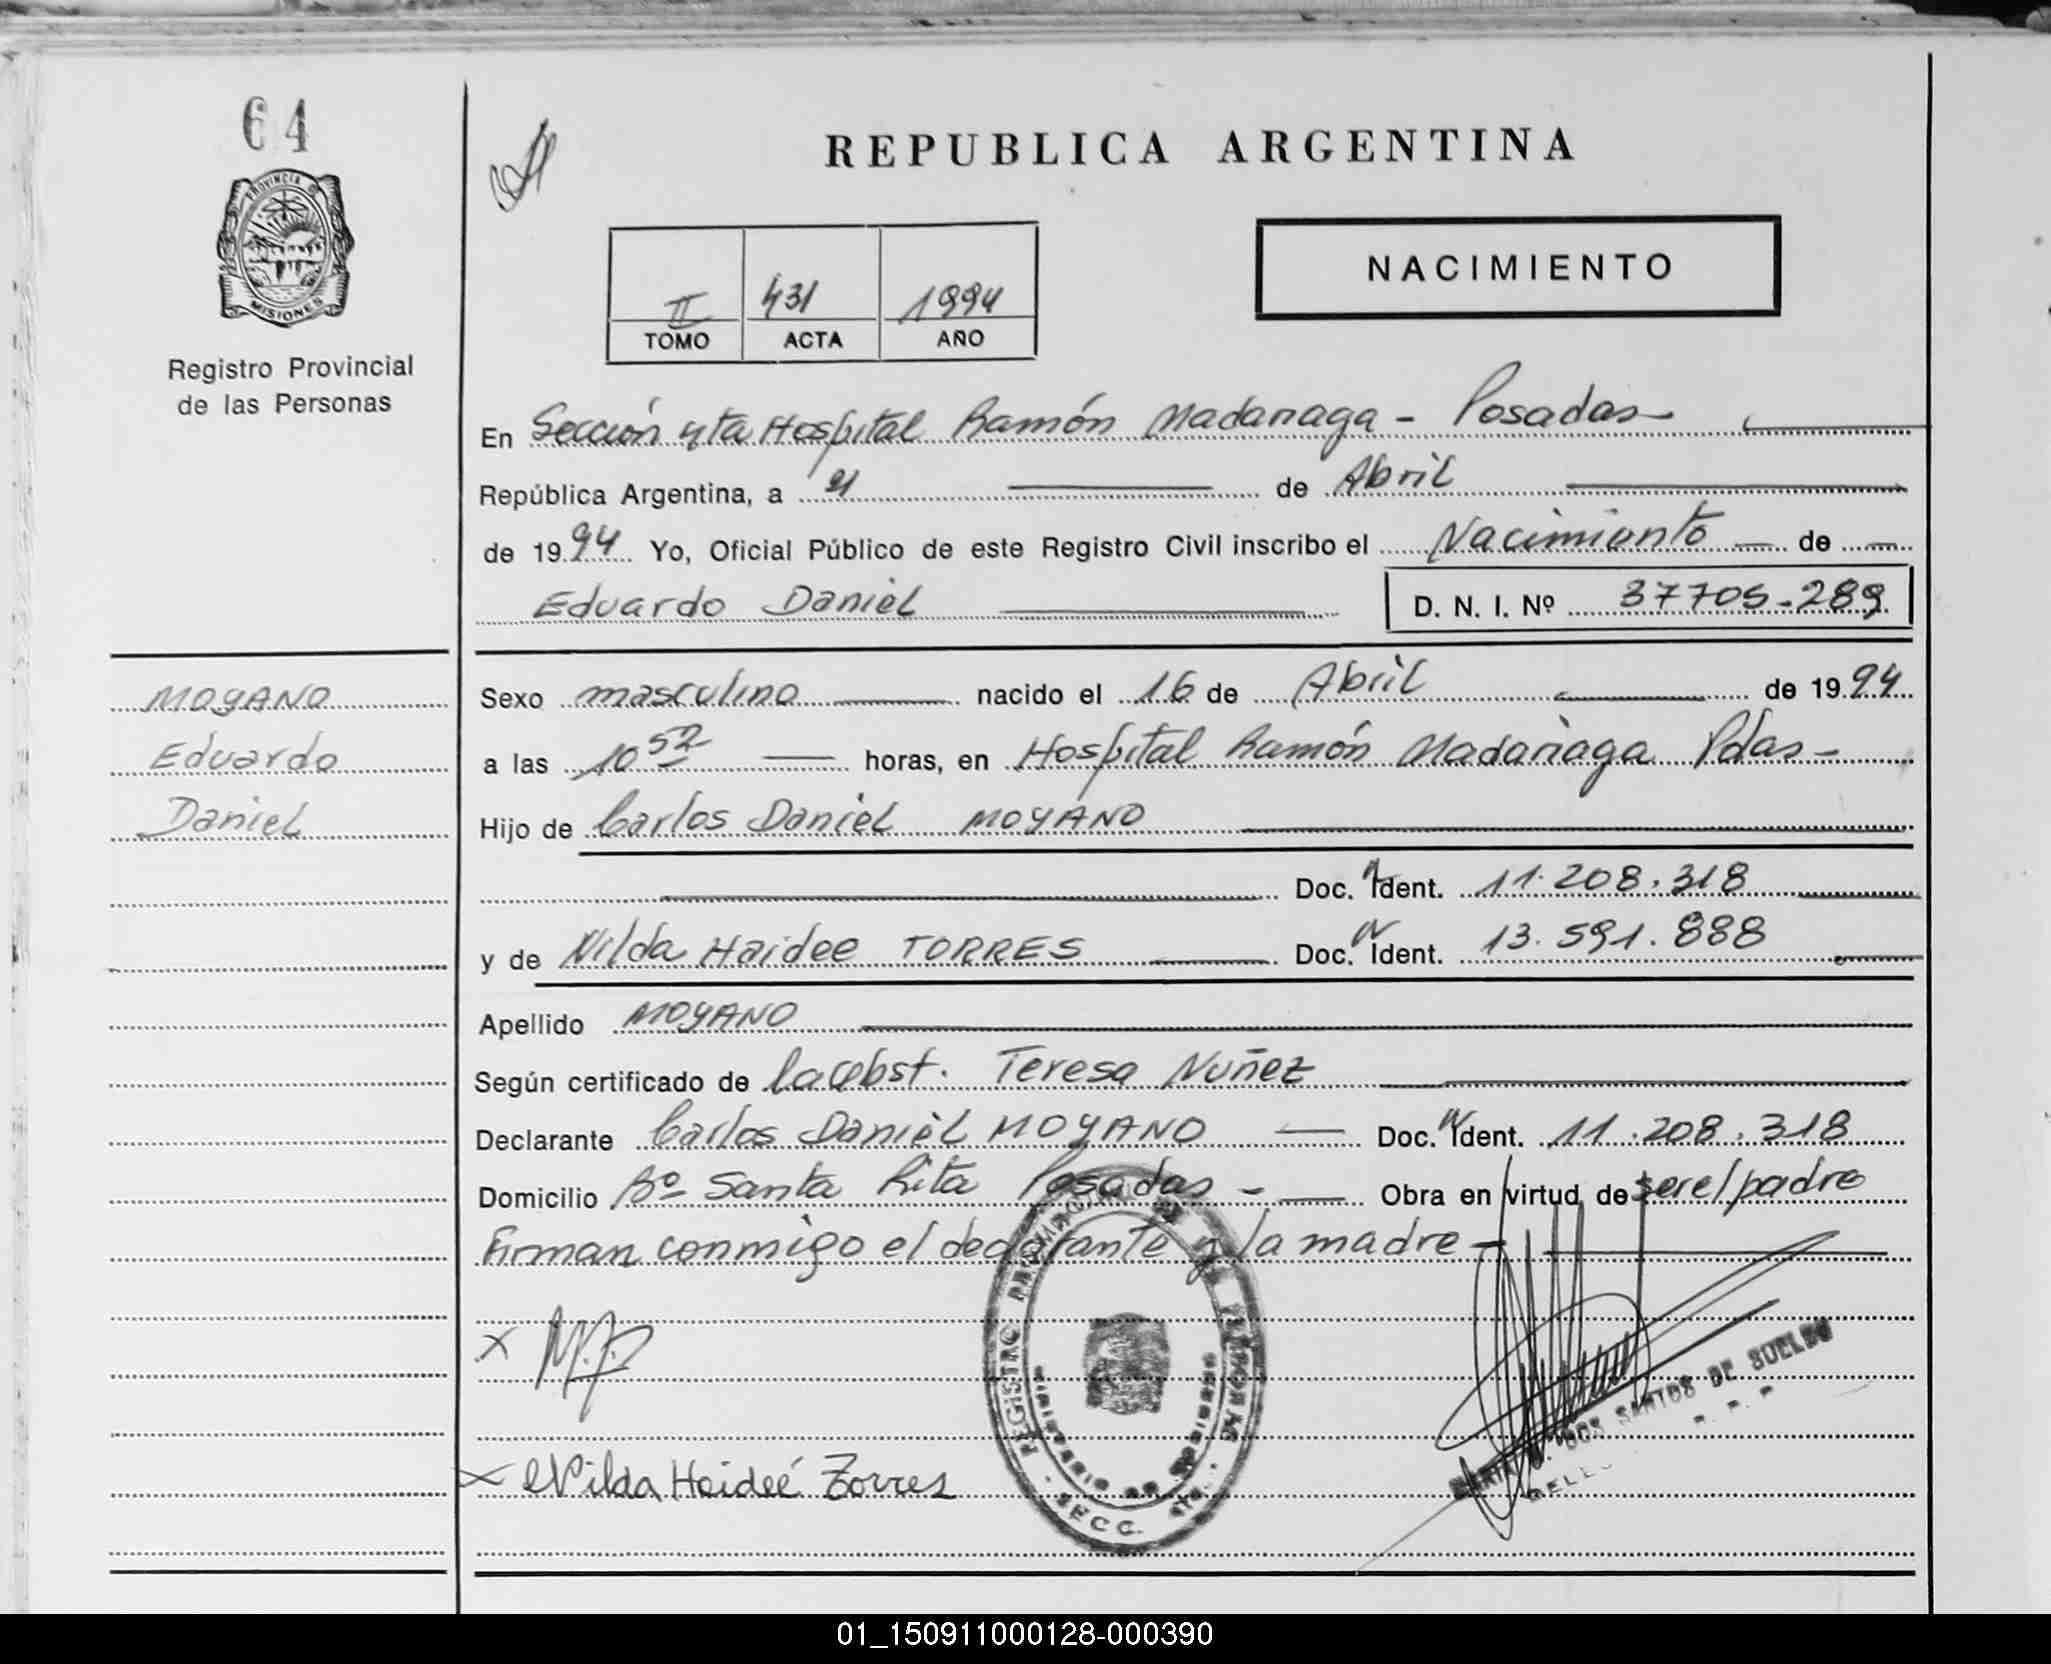 64
PROVINCIA D
MISIONES
Registro Provincial
de las Personas
REPUBLICA ARGENTINA
NACIMIENTO
II 431 1994
TOMO ACTA AÑO
En Sección 4ta Hospital Ramón Madariaga - Posadas
República Argentina, a 21 de Abril
de 1994 Yo, Oficial Público de este Registro Civil inscribo el Nacimiento de
Eduardo Daniel D. N. I. Nº 37705-289
MOYANO
Eduardo
Daniel
Sexo masculino nacido el 16 de Abril de 1994
a las 10 52 horas, en Hospital Ramón Madariaga Pdas-
Hijo de Carlos Daniel MOYANO
Doc. N Ident. 11.208.318
y de Nilda Haidee TORRES Doc. N Ident. 13.591.888
Apellido MOYANO
Según certificado de Lacobst. Teresa Nuñez
Declarante Carlos Daniel MOYANO Doc. N Ident. 11.208.318
Domicilio Bº Santa Rita Posadas - Obra en virtud de ser el padre
Firman conmigo el declarante y la madre -
x
x Nilda Haideé Torres
REGISTRO PROVINCIAL DE LAS PERSONAS
MINISTERIO DE GOBIERNO
SECC. 4ta.
DOS SANTOS DE SUELDO
01_150911000128-000390